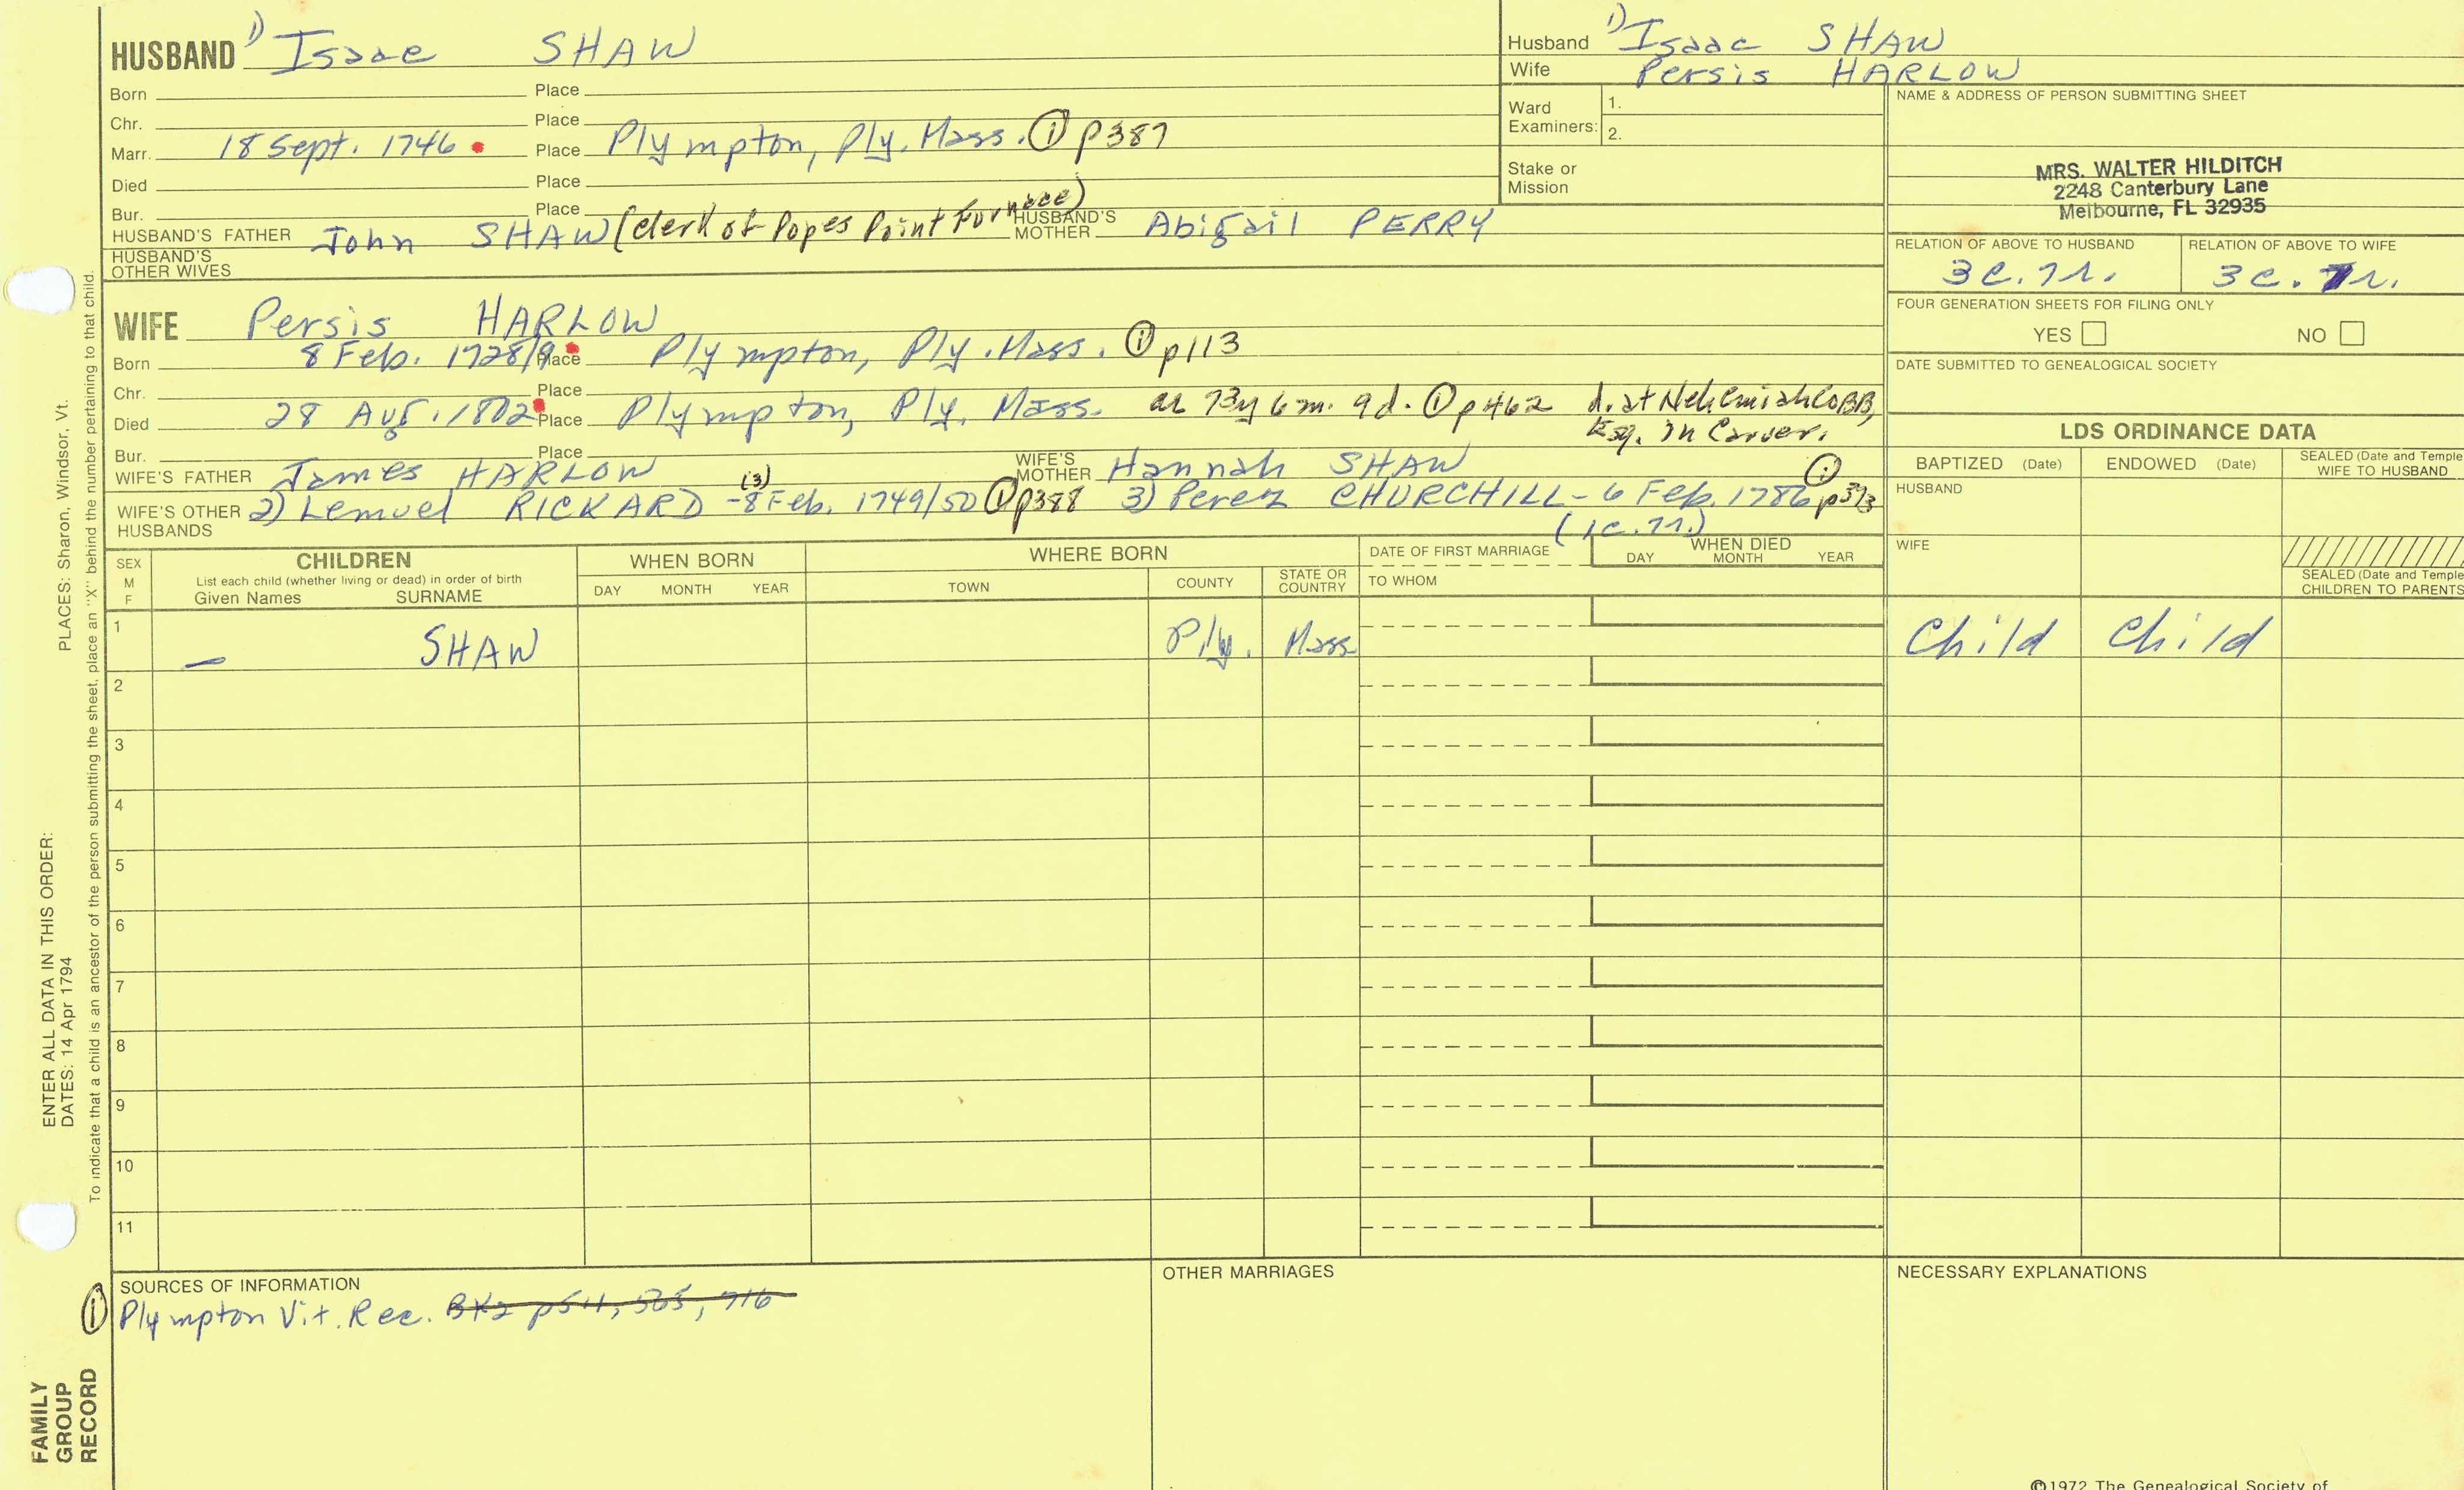 HUSBAND 1) Isaac SHAW
Born Place
Chr. Place
Marr. 18 Sept. 1746 Place Plympton, Ply. Mass. ① p387
Died Place
Bur. Place
HUSBAND'S FATHER John SHAW (clerk of Popes Point Furnace) HUSBAND'S MOTHER Abigail PERRY
HUSBAND'S OTHER WIVES
Husband 1) Isaac SHAW
Wife Persis HARLOW
Ward Examiners: 1.
2.
Stake or Mission
NAME & ADDRESS OF PERSON SUBMITTING SHEET
MRS. WALTER HILDITCH
2248 Canterbury Lane
Melbourne, FL 32935
RELATION OF ABOVE TO HUSBAND RELATION OF ABOVE TO WIFE
3c.7r. 3c.7r.
FOUR GENERATION SHEETS FOR FILING ONLY
YES NO
DATE SUBMITTED TO GENEALOGICAL SOCIETY
WIFE Persis HARLOW
Born 8 Feb. 1728/9 Place Plympton, Ply. Mass. ① p113
Chr. Place
Died 28 Aug. 1802 Place Plympton, Ply. Mass. ae 73y 6m. 9d. ① p462 d. at Nehemiah COBB,
Esq. in Carver.
Bur. Place
WIFE'S FATHER James HARLOW WIFE'S MOTHER Hannah SHAW
WIFE'S OTHER HUSBANDS 2) Lemuel RICKARD - 8 (3) Feb. 1749/50 ① p388 3) Perez CHURCHILL - 6 Feb. 1786 ① p313
LDS ORDINANCE DATA
BAPTIZED (Date) ENDOWED (Date) SEALED (Date and Temple
WIFE TO HUSBAND
HUSBAND
WIFE
SEALED (Date and Temple
CHILDREN TO PARENTS
SEX M F
CHILDREN
List each child (whether living or dead) in order of birth
Given Names SURNAME
WHEN BORN
DAY MONTH YEAR
WHERE BORN
TOWN COUNTY STATE OR COUNTRY
DATE OF FIRST MARRIAGE
TO WHOM
WHEN DIED
DAY MONTH YEAR
1 — SHAW Ply. Mass Child Child
2
3
4
5
6
7
8
9
10
11
SOURCES OF INFORMATION
① Plympton Vit. Rec.
OTHER MARRIAGES
NECESSARY EXPLANATIONS
©1972 The Genealogical Society of
ENTER ALL DATA IN THIS ORDER:
DATES: 14 Apr 1794 PLACES: Sharon, Windsor, Vt.
To indicate that a child is an ancestor of the person submitting the sheet, place an "X" behind the number pertaining to that child.
FAMILY
GROUP
RECORD